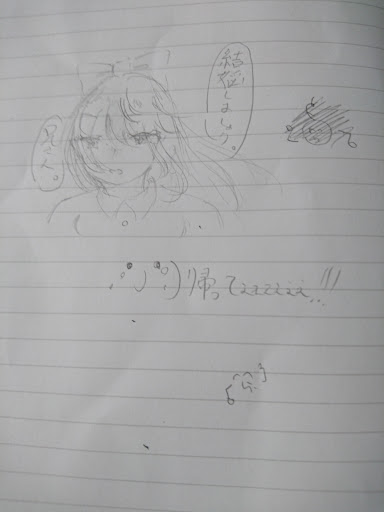 結婚しましょう。
兄さん。
帰ってぇぇぇぇぇ…!!!